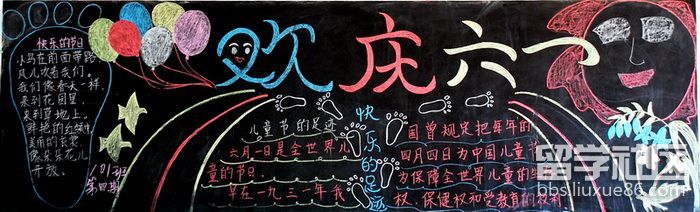 欢庆六一
快乐的节日
小鸟在前面带路
风儿吹着我们。
我们像春天一样,
来到花园里,
来到草地上。
鲜艳的红领巾
美丽的衣裳,
像朵朵花儿
开放。
101班
第四期
儿童节的足迹
六月一日是全世界儿
童的节日。
早在一九三一年我
快乐的足迹
国曾规定把每年的
四月四日为中国儿童节
为保障全世界儿童的生
权、保健权和受教育的权利
留学社区
bbs.liuxue86.com